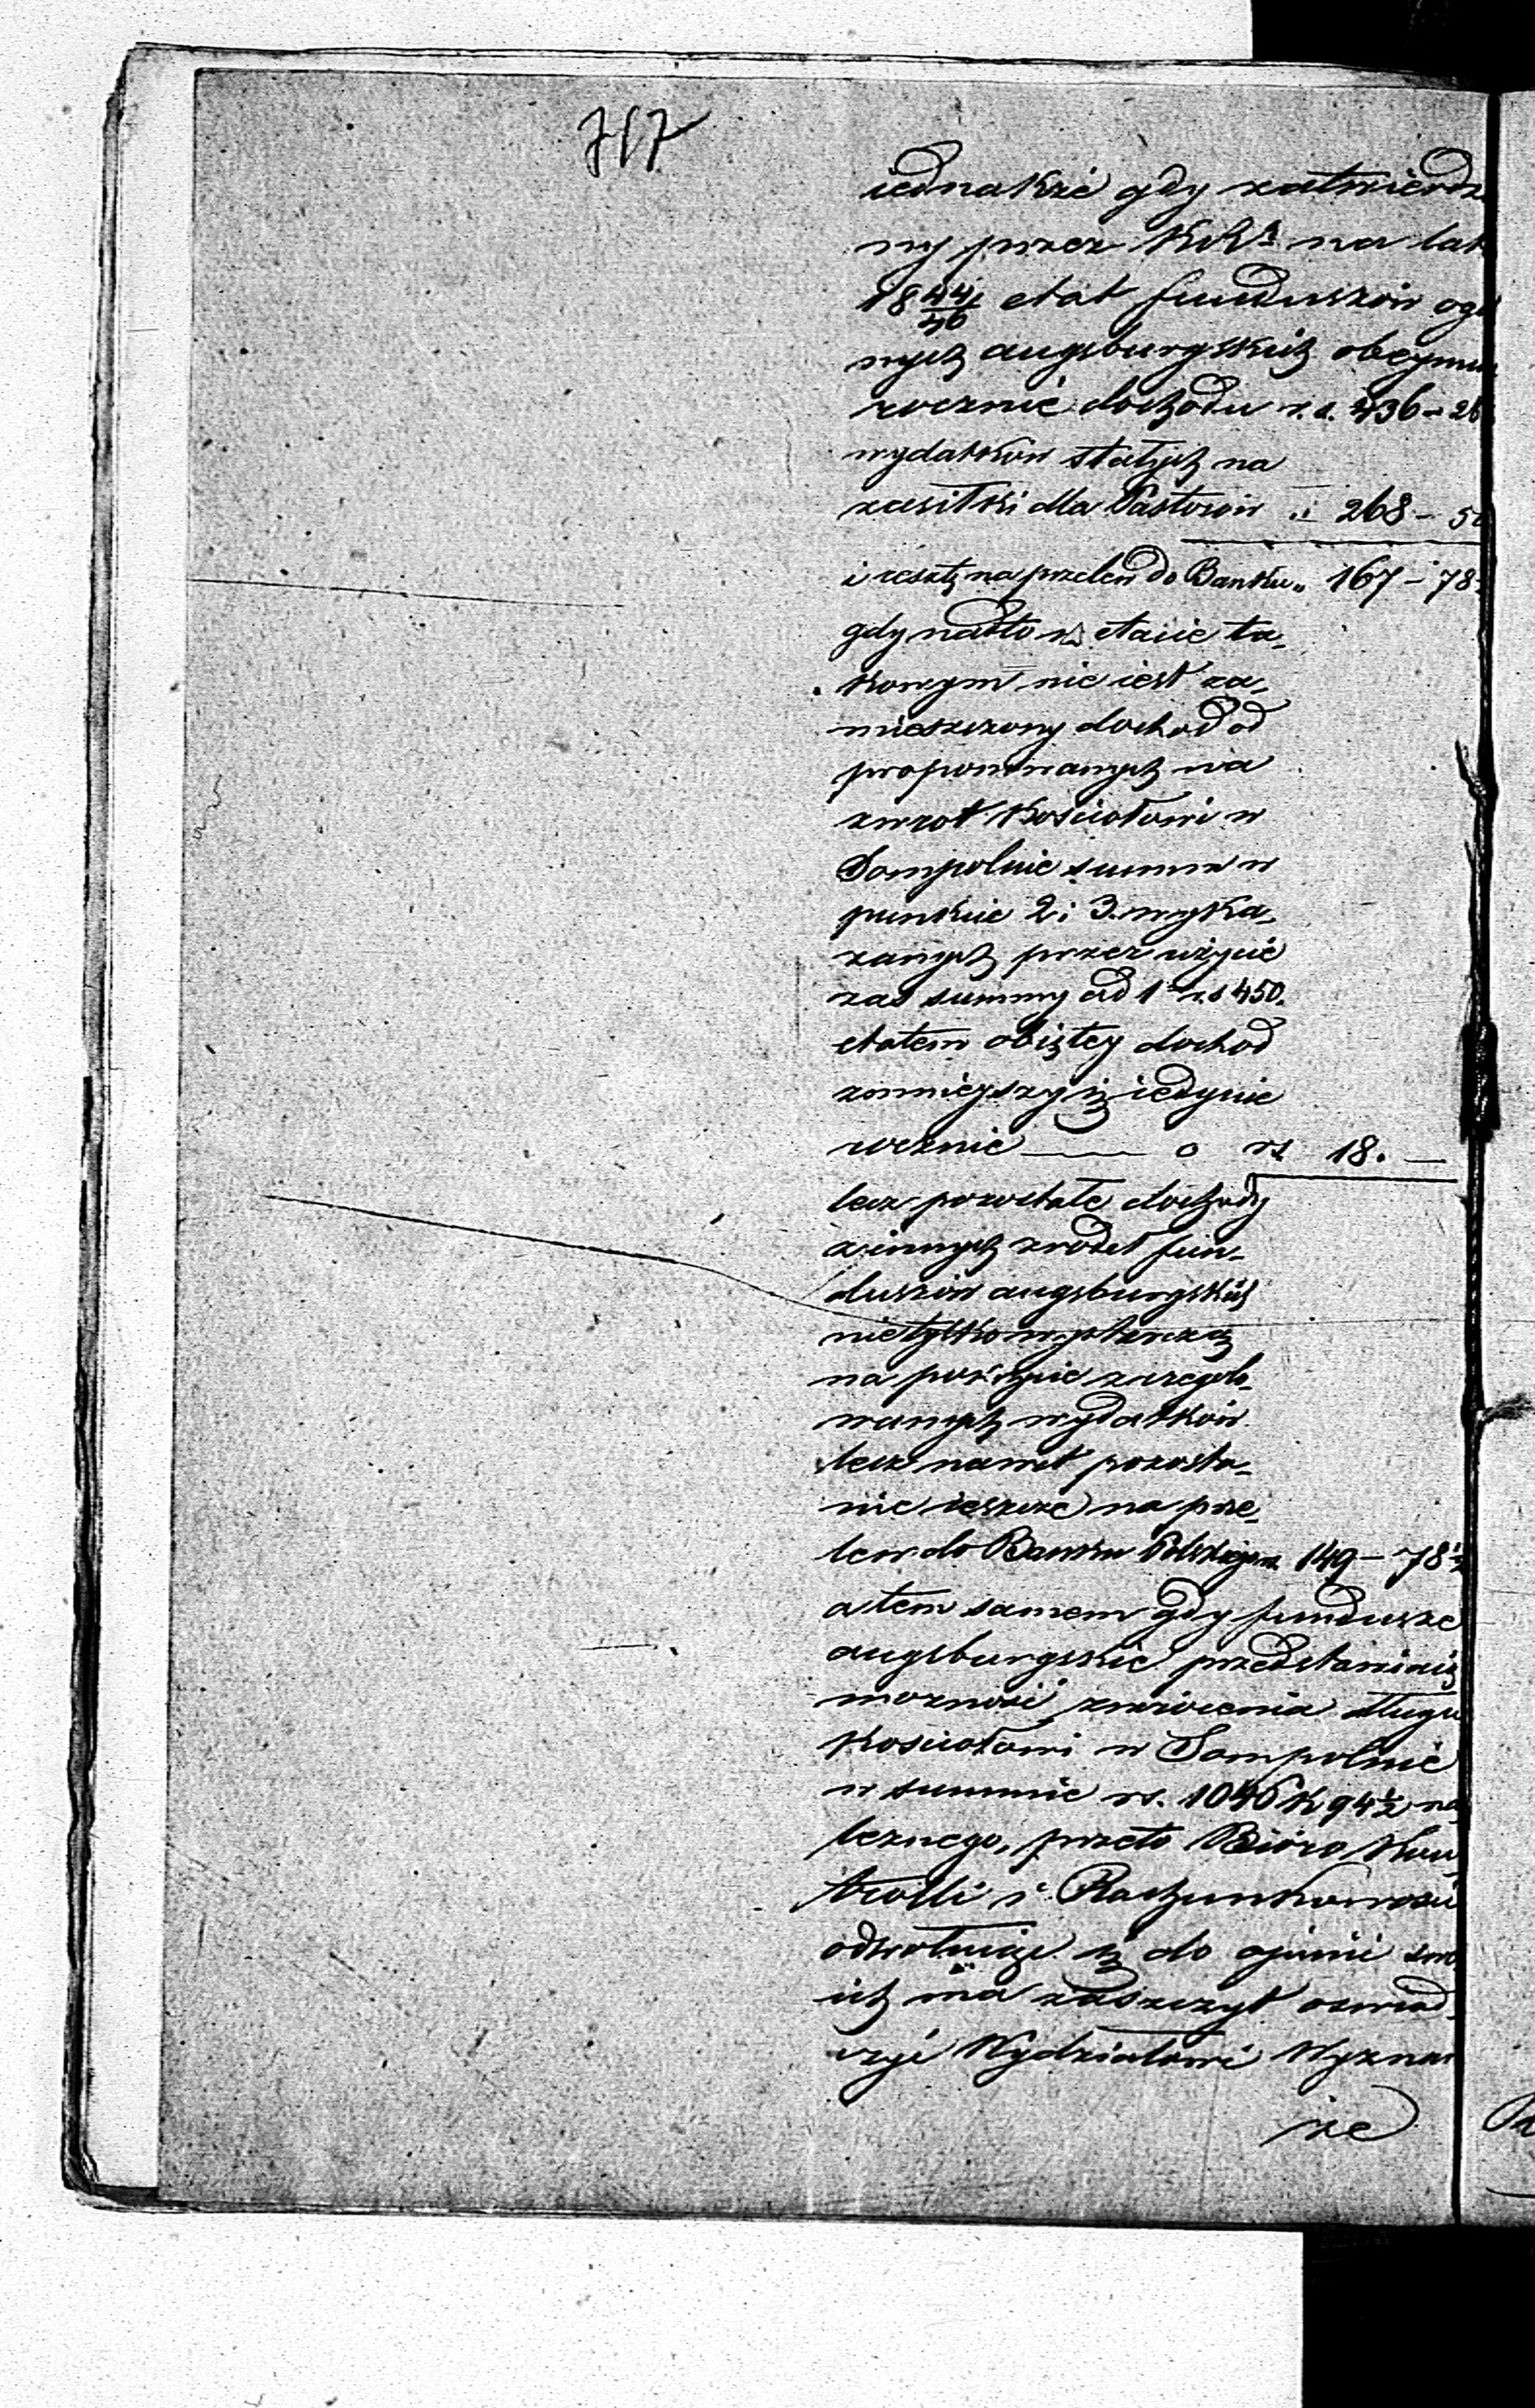 717
iednakże gdy zatwierdz
ny przez KRS na lat
18 44/46 etat funduszów ogó
nych augsburgskich obeymu
rocznie dochodu r.s. 436 - 28
wydatków stałych na
zasiłki dla Pastorów " 268 - 50
i resztę na przelew do Banku " 167 - 78
gdy nadto w etacie ta-
kowym nie iest za-
mieszczony dochód od
proponowanych na
zwrot Kościołowi w
Sompolnie summ w
punkcie 2 i 3. wyka-
zanych przez użycie
zaś summy ad 1 r.s 450.
etatem obiętey dochod
zmnieyszy się iedynie
rocznie o rs 18. —
lecz pozostałe dochody
z innych zrodeł fun-
duszów augsburgskich
nie tylko wystarczą
na pokrycie
wanych wydatków
lecz nawet pozosta-
nie ieszcze na prze-
lew do Banku Polskiego rs 149 - 78½
a tem samem gdy fundusze
augsburgskie przedstawiaią
możność zwrócenia długu
Kościołowi w Sompolnie
w summie rs. 1046 k 94½ na
leznego, przeto Bióro Kon-
trolli i Rachunkowości
odwołuiąc się do opinii swo
ich ma zaszczyt oswiad-
czyć Wydziałowi Wyznań
że